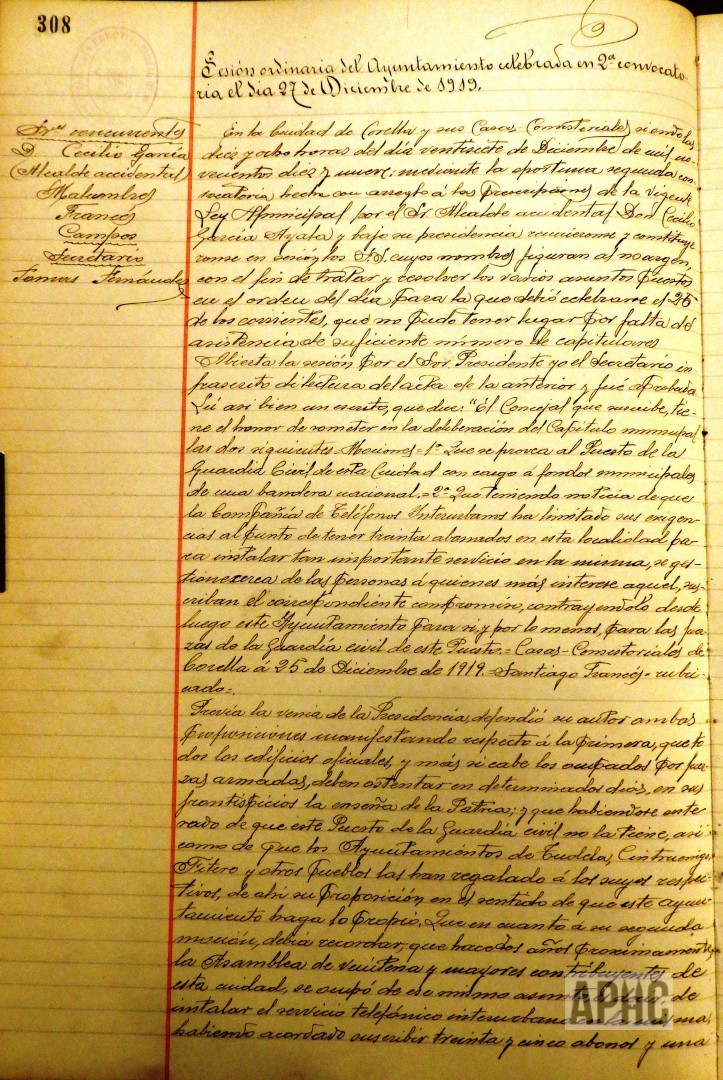 308
Sesión ordinaria del Ayuntamiento celebrada en 2ª convocato-
ria el dia 27 de Diciembre de 1919.
Sres concurrentes
D. Cecilio García
(Alcalde accidental)
Malumbres
Francés
Campos
Secretario
Tomas Fernández
En la Ciudad de Corella y sus Casas Consistoriales, siendo las
diez y ocho horas del día ventisiete de Diciembre de mil no-
vecientos diez y nueve; mediante la oportuna segunda con-
vocatoria hecha con arreglo á las prescripciones de la vigente
Ley Municipal por el Sr Alcalde accidental Don Cecilio
García Ayala y bajo su presidencia reunieronse y constituye-
ronse en sesión los S.S. cuyos nombres figuran al margen,
con el fin de tratar y resolver los varios asuntos puestos
en el orden del día para la que debió celebrarse el 25
de los corrientes, que no pudo tener lugar por falta de
asistencia de suficiente número de capitulares
Abierta la sesión por el Sor. Presidente yo el Secretario in-
frascrito di lectura del acta de la anterior y fué aprobada
Leí asi bien un escrito, que dice: "El Concejal que suscribe, tie-
ne el honor de someter en la deliberación del Capítulo municipal
las dos siguientes = Mociones = 1ª Que se provea al Puesto de la
Guardia Civil de esta Ciudad con cargo á fondos municipales
de una bandera nacional. = 2ª Que teniendo noticia de que
la Compañía de Teléfonos Interurbanos ha limitado sus exigen-
cias al punto de tener treinta abonados en esta localidad pa-
ra instalar tan importante servicio en la misma, se ges-
tione cerca de las personas á quienes más interese aquel, sus-
criban el correspondiente compromiso, contrayendolo desde
luego este Ayuntamiento para si, y por lo menos, para las fuer-
zas de la Guardia civil de este Puesto. = Casas-Consistoriales de
Corella á 25 de Diciembre de 1919. = Santiago Francés = rubri-
cado =.
Previa la venia de la Presidencia, defendió su autor ambas
proposiciones manifestando respecto á la primera, que to-
dos los edificios oficiales, y más si cabe los ocupados por fuer-
zas armadas, deben ostentar en determinados dias, en sus
frontispicios la enseña de la Patria; y que habiendose ente-
rado de que este Puesto de la Guardia civil no la tiene, asi
como de que los Ayuntamientos de Tudela, Cintruenigo,
Fitero y otros pueblos las han regalado á los suyos respec-
tivos, de ahi su proposición en el sentido de que este ayun-
tamiento haga lo propio. Que en cuanto á su segunda
moción, debia recordar, que hace dos años proximamente,
la Asamblea de veintena y mayores contribuyentes de
esta ciudad, se ocupó de ese mismo asunto de
instalar el servicio telefónico interurbano en la misma,
habiendo acordado suscribir treinta y cinco abonos y una
APHC